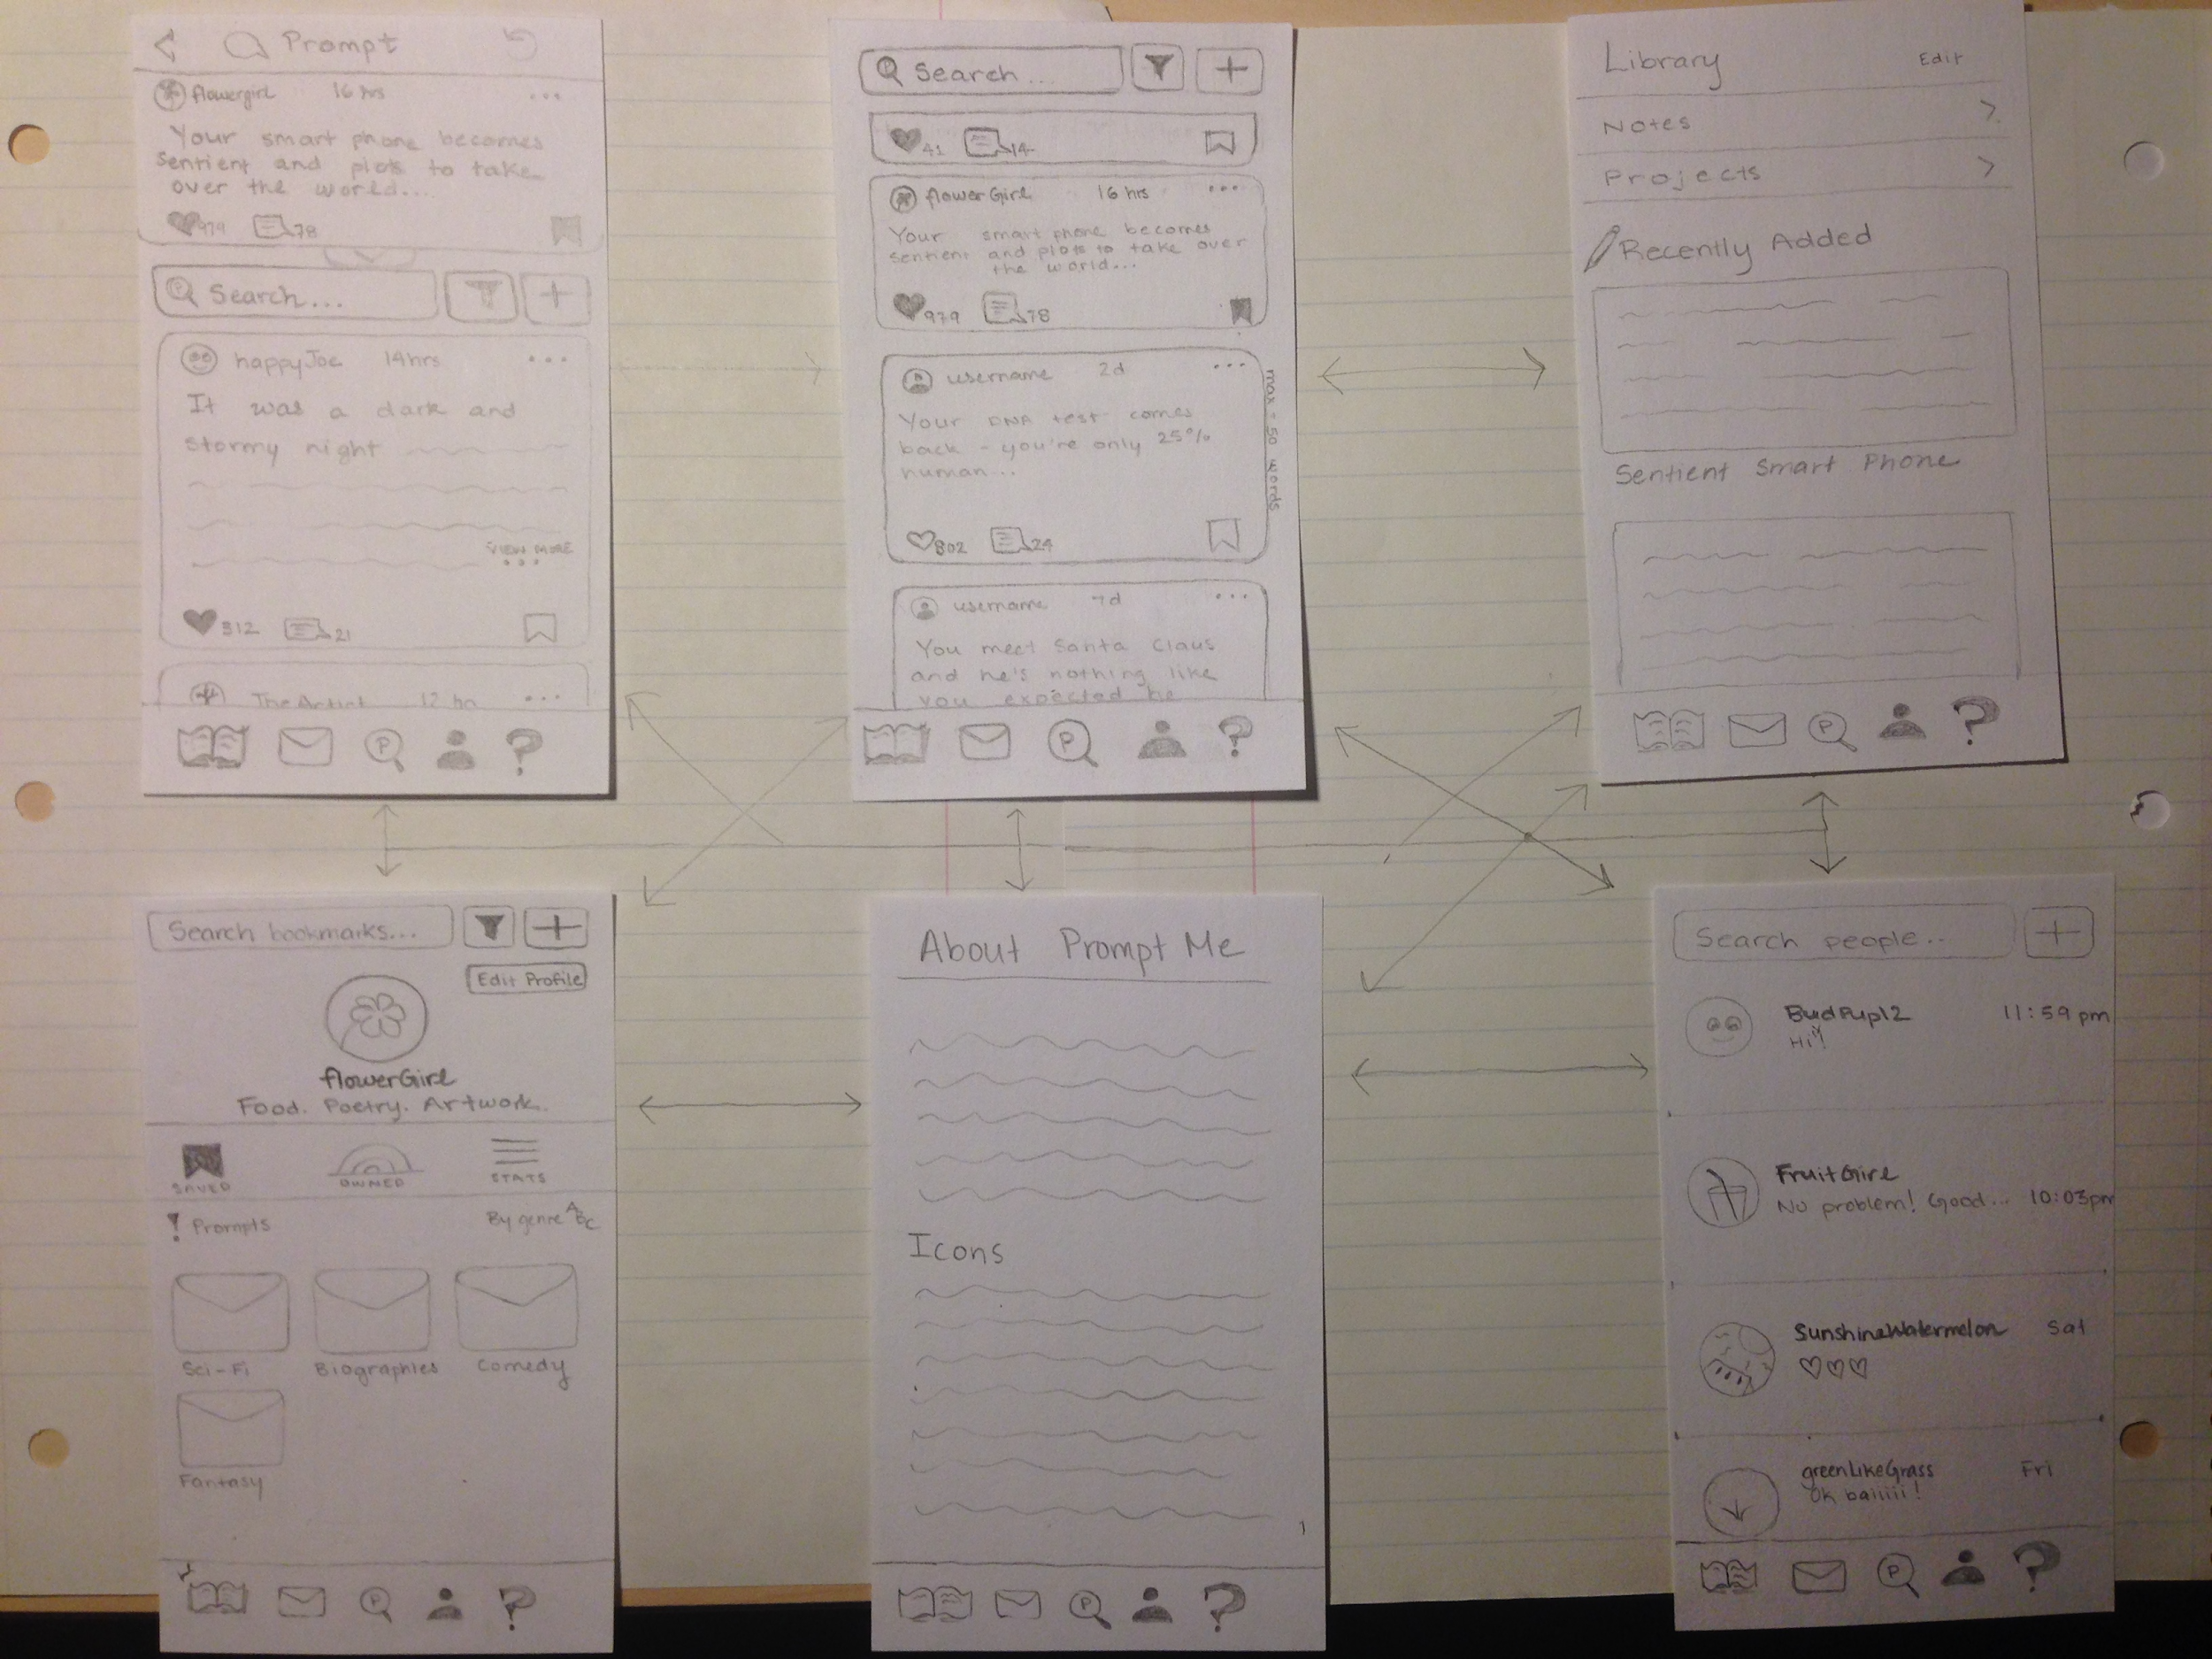 Prompt
flowergirl 16 hrs ...
Your smart phone becomes
sentient and plots to take
over the world...
979 78
Search...
happyJoe 14hrs ...
It was a dark and
stormy night
VIEW MORE
...
312 21
The Artist 12 hr ...
Search...
41 14
flowerGirl 16 hrs ...
Your smart phone becomes
sentient and plots to take over
the world...
979 78
username 2d ...
Your DNA test comes
back - you're only 25%
human...
max = 50 words
802 24
username 7d ...
You meet Santa Claus
and he's nothing like
you expected he
P
Library Edit
Notes >
Projects >
Recently Added
Sentient Smart Phone
P
Search bookmarks...
Edit Profile
flowerGirl
Food. Poetry. Artwork.
SAVED OWNED STATS
! Prompts By genre ABC
Sci-Fi Biographies Comedy
Fantasy
P ?
About Prompt Me
Icons
P ?
Search people..
BudPup12 11:59 pm
Hi!
FruitGirl
No problem! Good... 10:03pm
SunshineWatermelon Sat
♡♡♡
greenLikeGrass Fri
Ok baiiiii!
P ?